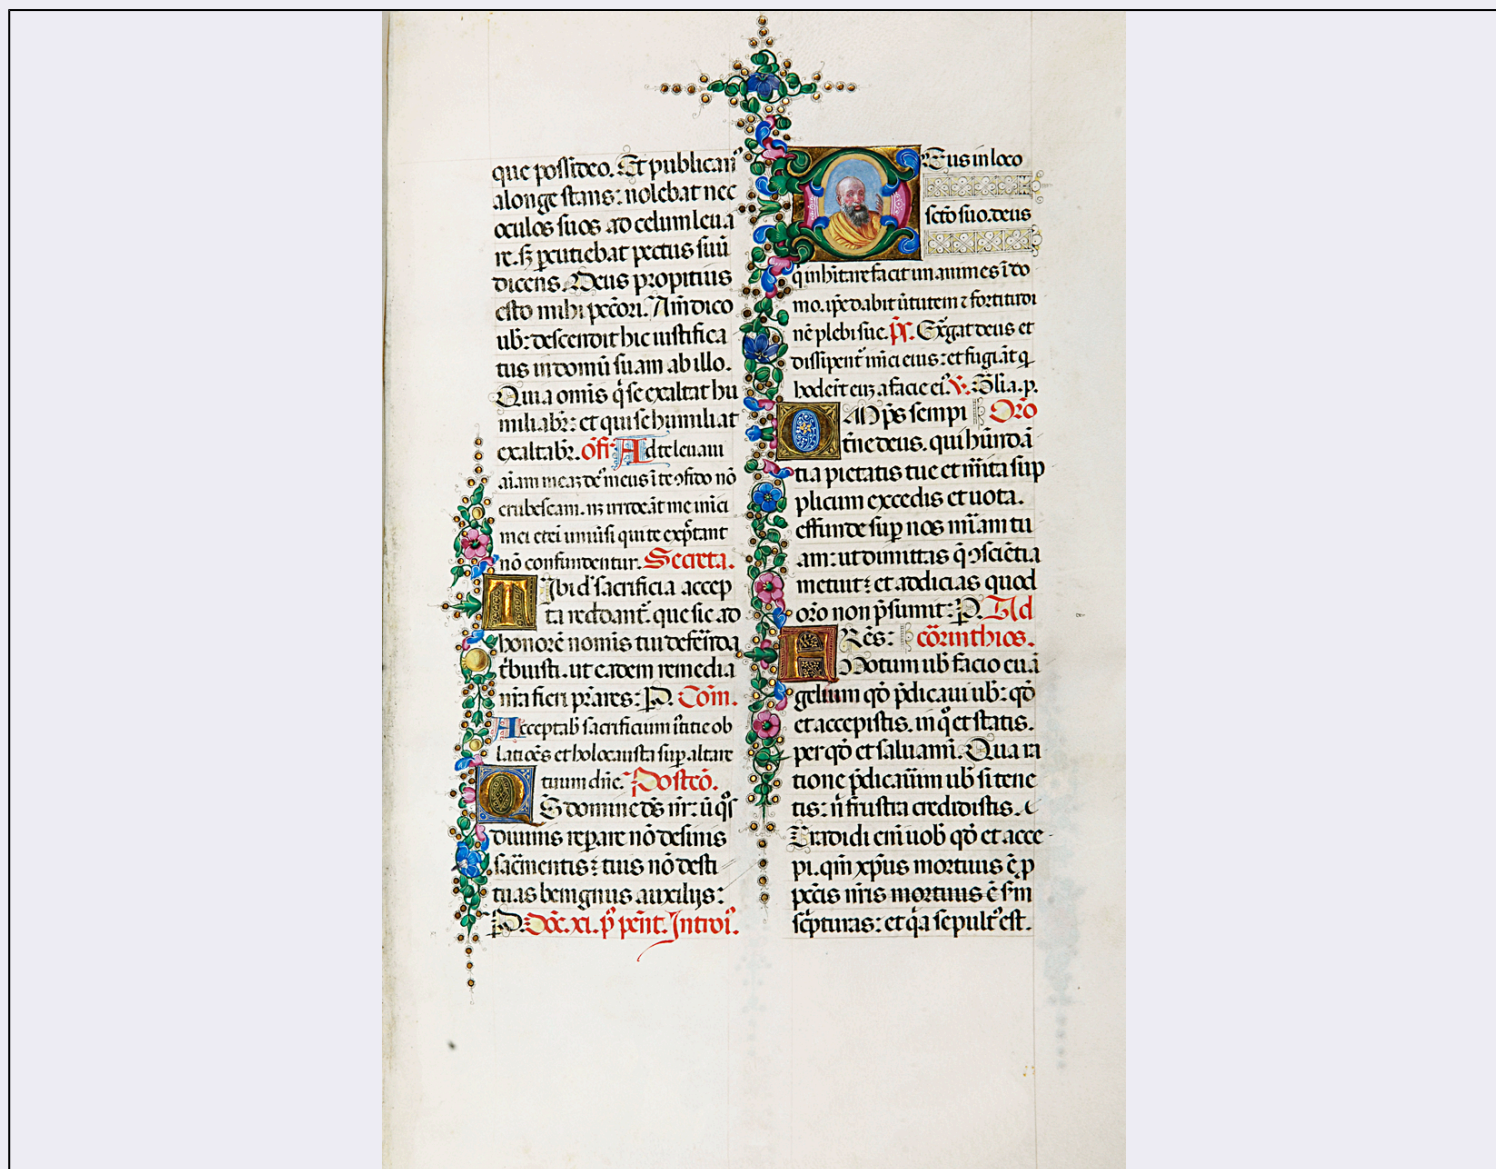 que possideo. Et publican᷒
alonge stans: nolebat nec
oculos suos ad celum leua
re. sꝫ ꝑcutiebat pectus suū
dicens. Deus propitius
esto mihi pctōri. Amē dico
ub̄: descendit hic iustifica
tus in domū suam ab illo.
Quia omīs q̇ se exaltat hu
miliabr̄: et qui se humiliat
exaltabr̄. Off̄. Ad te leuaui
aīam meaꝫ de᷒ meus ī te ꝯfido nō
erubescam. nꝫ irrideāt me inīci
mei etēī uniūsi qui te expc̄tant
nō confundentur. Secreta.
Tibi d᷒ sacrificia accep
ta reddant̄. que sic ad
honorē nomīs tui deferēda
tͥbuisti. ut eadem remedia
nr̄a fieri p̄stares: P. Com̄.
Acceptab̄ sacrificium iustitie ob
latiōēs et holocausta suꝑ altare
tuum dn̄e. Postcō.
QS domine ds̄ nr̄: ū qͦs
diuinis reparare nō desinis
sacr̄mentis: tuis nō desti
tuas benignus auxilijs:
P. Doc̄. xi. p᷒ pēnt. Introi᷒.
Deus in loco
sctō suo. deus
q inhītare facit unanimes ī do
mo. ip̄e dabit ūtutem ⁊ fortitudi
nē plebi sue. p̄s. Exꝰgat deus et
dissipent᷒ inīci eius: et fugiāt q̇
hoderūt euꝫ a facie ei᷒. ℣. Glia. p.
OMp̄s sempi Orō
tn̄e deus. qui hūndā
tia pietatis tue et mīta suꝑ
plicum excedis et uota.
effunde suꝑ nos mīam tu
am: ut dimittas q̄ ꝯsciētia
metuit: et adicias quod
orō non p̄sumit: P. Ad
FRēs: cōrinthios.
Notum ub̄ facio euā
gelium qd̄ p̄dicaui ub̄: qd̄
et accepistis. in qͦ et statis.
per qd̄ et saluamī. Qua ra
tione p̄dicauīm ub̄ si tene
tis: n̄ frustra credidistis.
Tradidi enī uob̄ qd̄ et acce
pi. qm̄ xp̄us mortuus ē ꝓ
pctīs nr̄is mortuus ē sm̄
sc̄pturas: et q̇a sepult᷒ est.